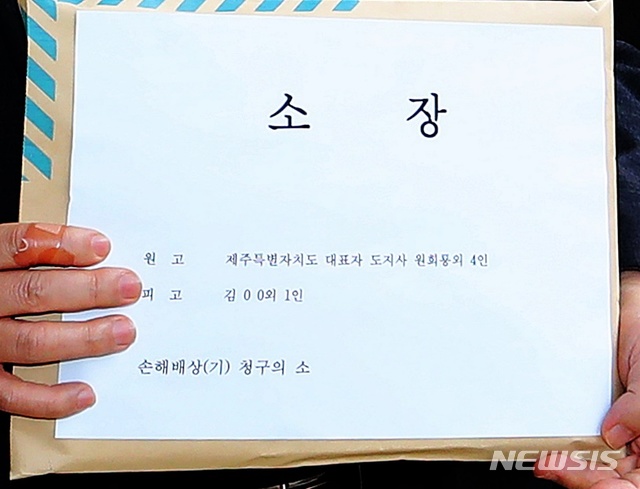 소 장
원 고 제주특별자치도 대표자 도지사 원희룡외 4인
피 고 김 0 0외 1인
손해배상(기) 청구의 소
NEWSIS